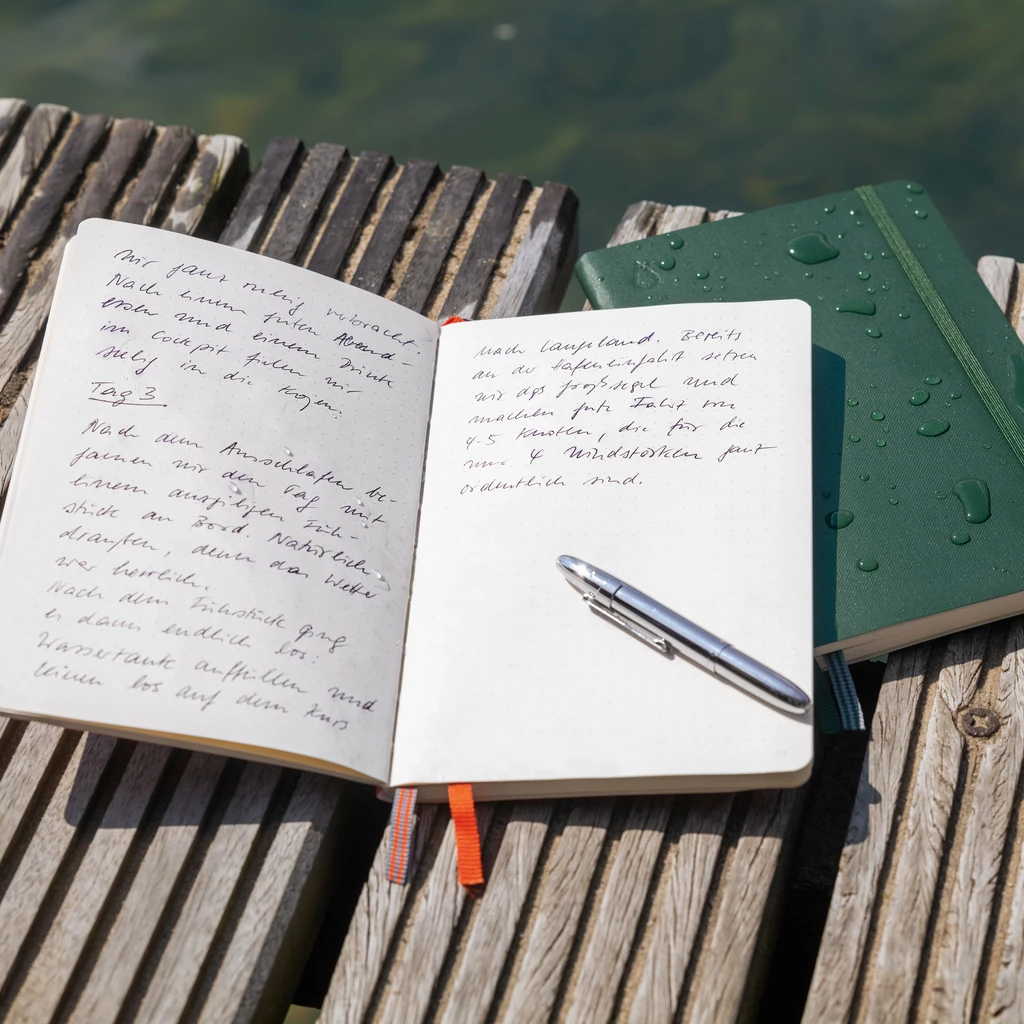 wir ganz ruhig verbracht.
Nach einem guten Abend-
essen und einem Drink
im Cockpit fielen wir
selig in die Kojen.
Tag 3
Nach dem Ausschlafen be-
gannen wir den Tag mit
einem ausgiebigen Früh-
stück an Bord. Natürlich
draußen, denn das Wetter
war herrlich.
Nach dem Frühstück ging
es dann endlich los:
Wassertank auffüllen und
Leinen los auf dem Kurs
nach Langeland. Bereits
an der Hafeneinfahrt setzen
wir das Großsegel und
machen gute Fahrt von
4-5 Knoten, die für die
nur 4 Windstärken ganz
ordentlich sind.